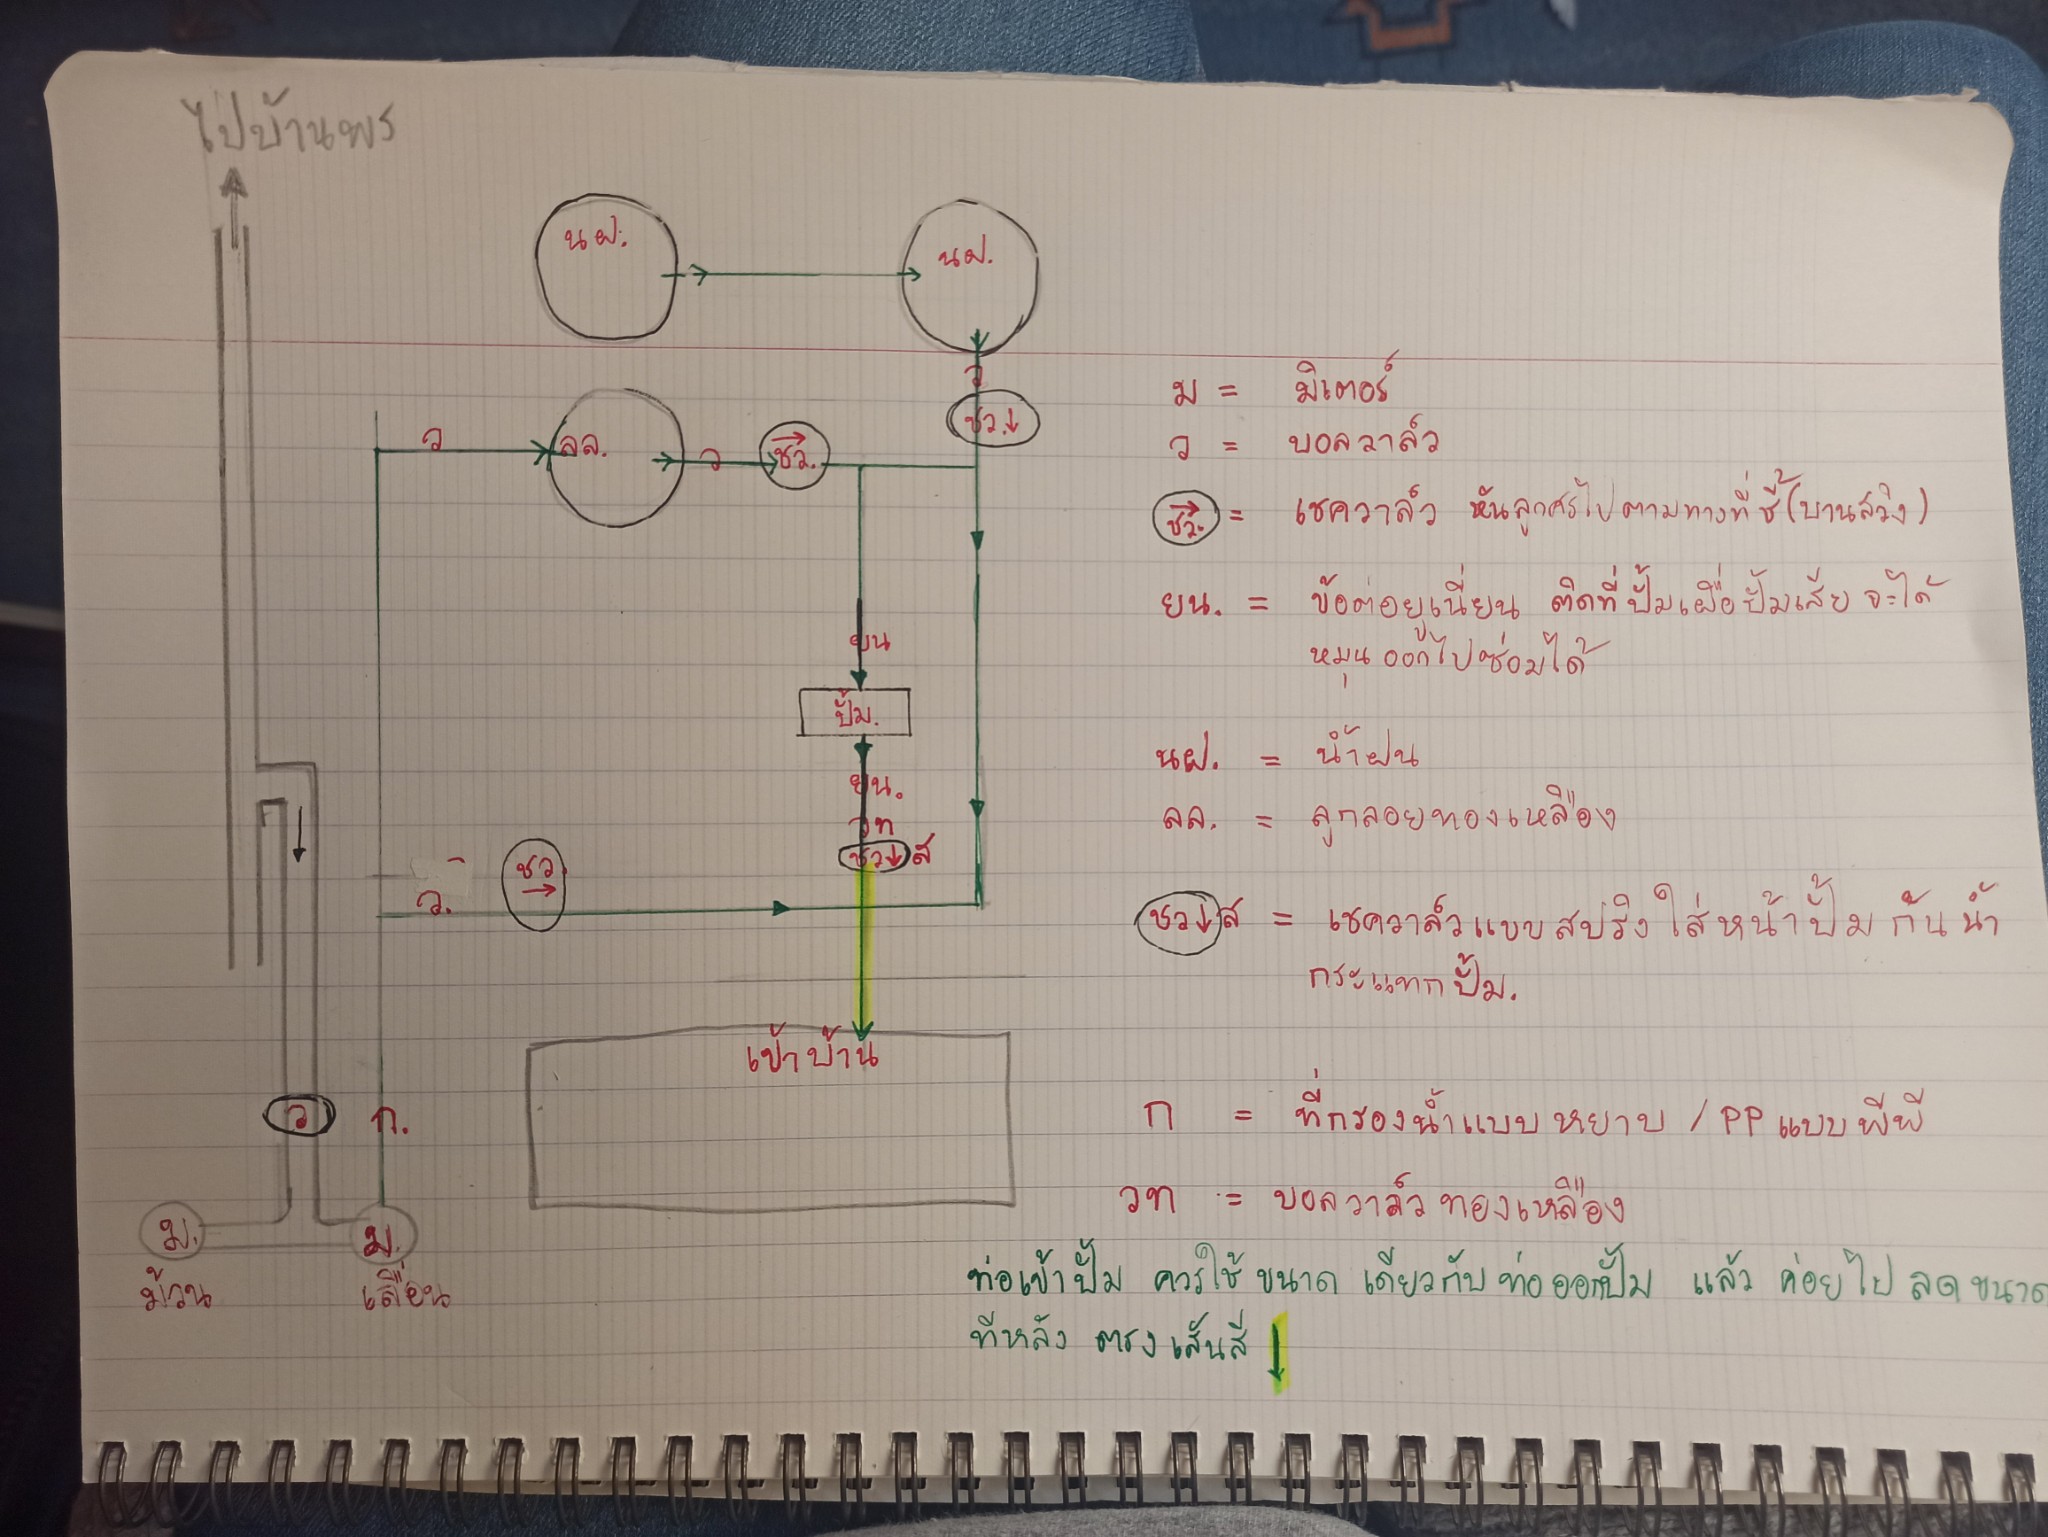 ไปบ้านพร
นฝ.
นฝ.
ว
ชว.↓
ว
ลล.
ว
ชว.
ยน
ปั้ม.
ยน.
วท
ชว↓ ส
ชว
ว.
เข้าบ้าน
ว
ก.
ม.
ม.
ม้วน
เลื่อน
ม = มิเตอร์
ว = บอลวาล์ว
ชว. = เชควาล์ว หันลูกศรไปตามทางที่ชี้ (บานสวิง)
ยน. = ข้อต่อยูเนี่ยน ติดที่ปั้มเผื่อปั้มเสียจะได้
หมุนออกไปซ่อมได้
นฝ. = น้ำฝน
ลล. = ลูกลอยทองเหลือง
ชว↓ ส = เชควาล์วแบบสปริงใส่หน้าปั้มกันน้ำ
กระแทกปั้ม.
ก = ที่กรองน้ำแบบหยาบ / PP แบบพีพี
วท = บอลวาล์วทองเหลือง
ท่อเข้าปั้ม ควรใช้ ขนาด เดียวกับท่อออกปั้ม แล้ว ค่อยไป ลดขนาด
ทีหลัง ตรงเส้นสี ↓